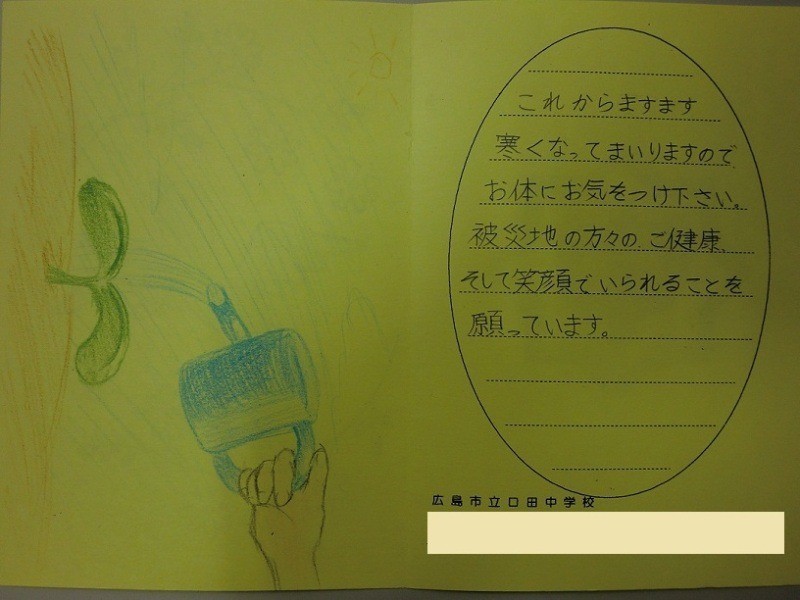 これからますます
寒くなってまいりますので
お体にお気をつけ下さい。
被災地の方々のご健康、
そして笑顔でいられることを
願っています。
広島市立口田中学校